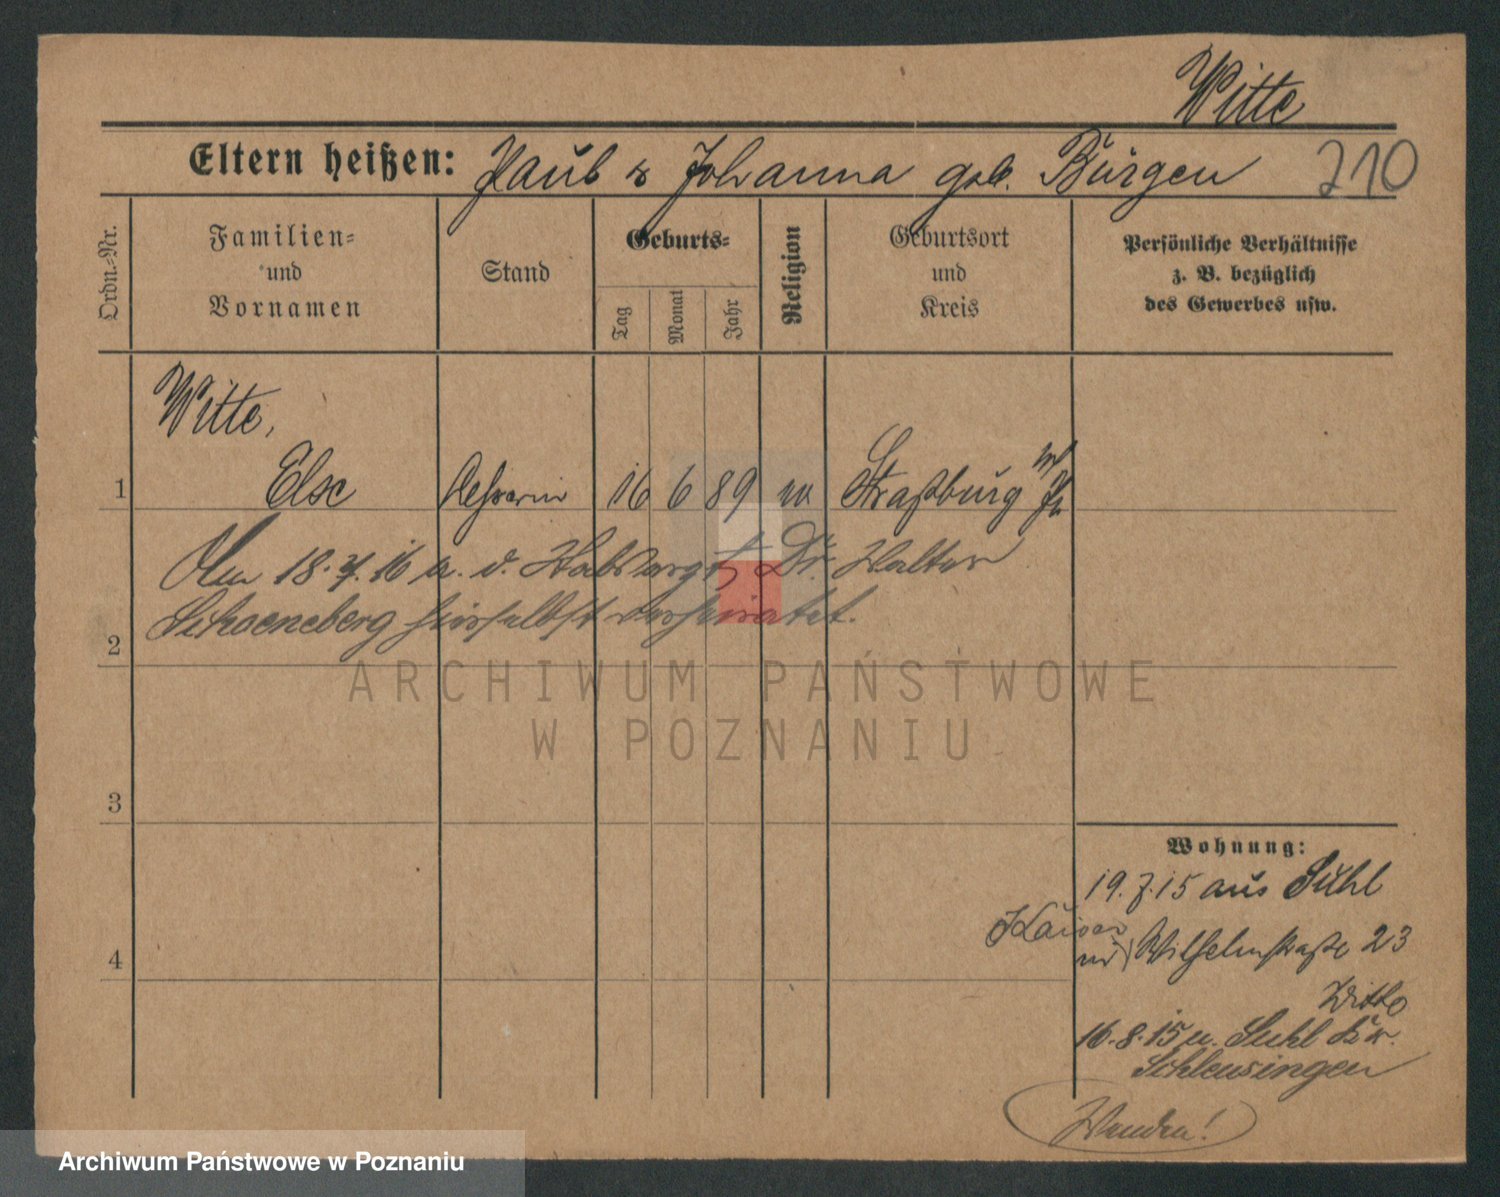 Witte
Eltern heißen: Paul & Johanna geb. Bürgen 210
Ordn.-Nr.
Familien-
und
Vornamen
Stand
Geburts-
Tag
Monat
Jahr
Religion
Geburtsort
und
Kreis
Persönliche Verhältnisse
z. B. bezüglich
des Gewerbes usw.
Witte,
1 Else Lehrerin 16 6 89 Straßburg
Am 18.7.16 a. d. Dr. Walter
Schoeneberg hierselbst verheiratet.
2
ARCHIWUM PAŃSTWOWE
W POZNANIU
3
4
Wohnung:
19.7.15 aus Suhl
Kaiser
Wilhelmstraße 23
Witte
16.8.15 n. Suhl Kr.
Schleusingen
Wenden!
Archiwum Państwowe w Poznaniu